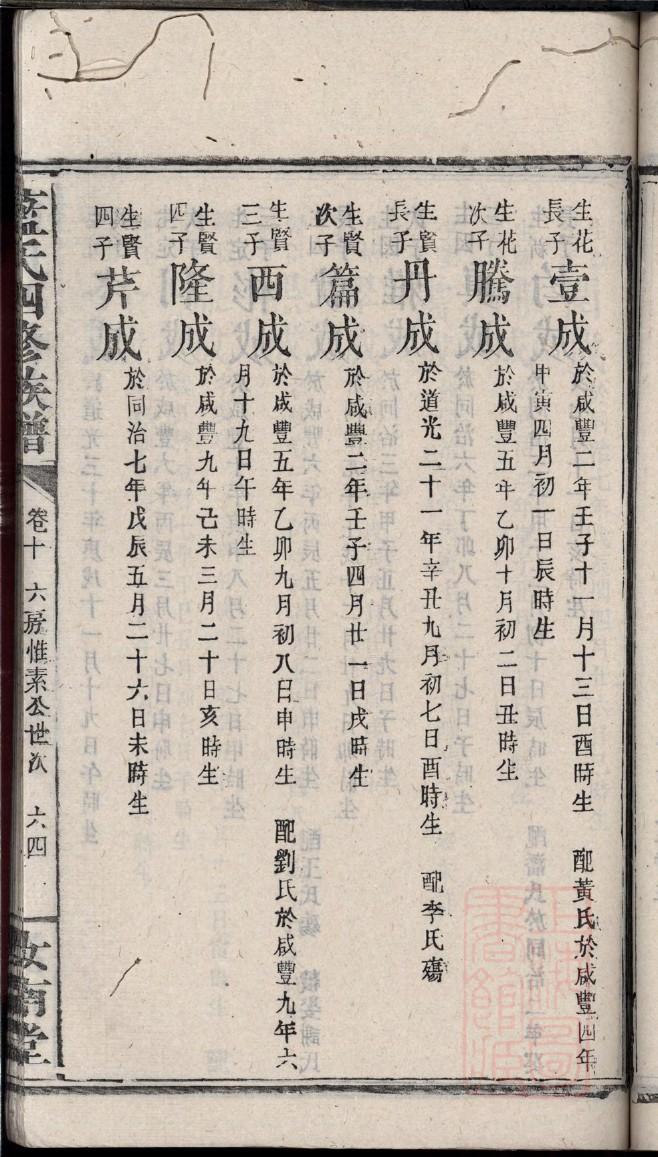 花生長子壹成於咸豐二年壬子十一月十三日酉時生 配黃氏於咸豐四年
甲寅四月初一日辰時生
花生次子騰成於咸豐五年乙卯十月初二日丑時生
賢生長子丹成於道光二十一年辛丑九月初七日酉時生 配李氏殤
賢生次子篇成於咸豐二年壬子四月廿一日戌時生
賢生三子酉成於咸豐五年乙卯九月初八日申時生 配劉氏於咸豐九年六
月十九日午時生
賢生四子隆成於咸豐九年己未三月二十日亥時生
賢生四子芹成於同治七年戊辰五月二十六日未時生
氏四修族譜
卷十 六房惟素公世次 六四
汝南堂